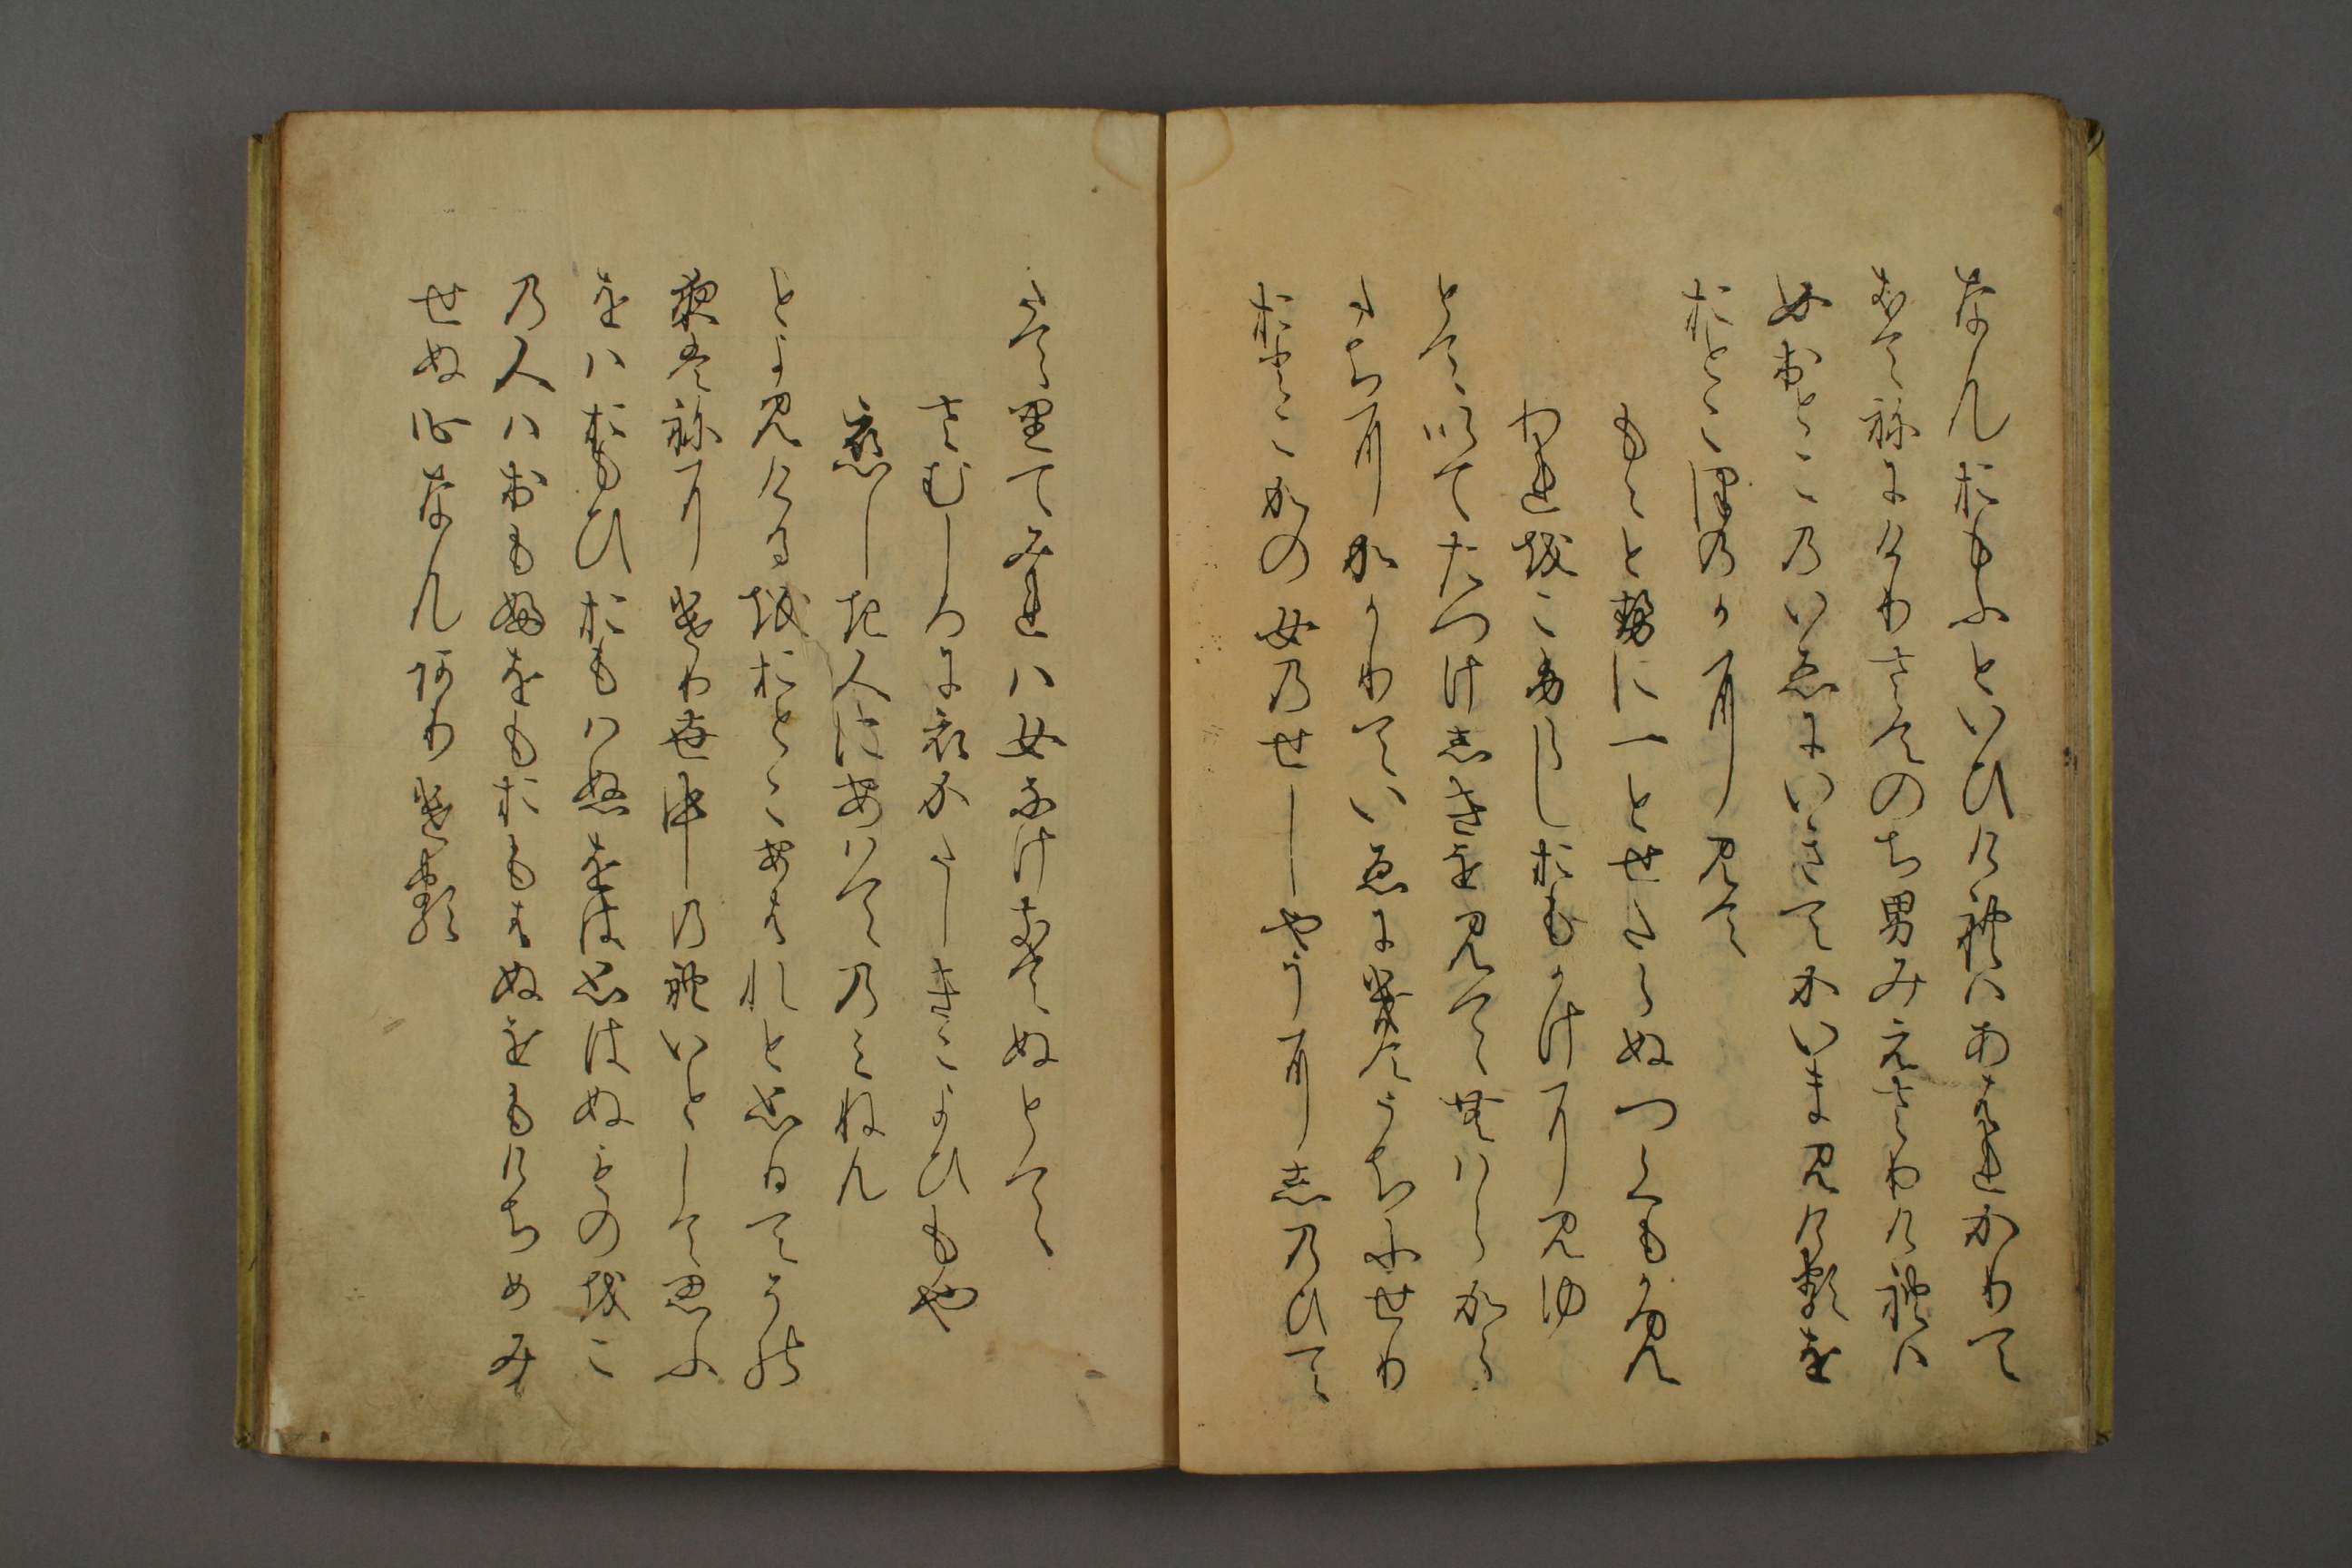 なんおもふといひけれはあはれかりて
きてねにけりさてのち男みえさりけれは
女おとこのいゑにいきてかいま見けるを
おとこほのかに見て
もゝとせに一とせたらぬつくもかみ
われをこふらしおもかけに見ゆ
とていてたつけしきを見てむはらから
たちにかゝりていゑにきてうちふせり
おとこかの女のせしやうにしのひて
たてりてみれは女なけきてぬとて
さむしろに衣かたしきこよひもや
恋しき人にあはてのみねん
とよみけるをおとこあはれと思ひてその
夜はねにけり世中のれいとして思ふ
をはおもひおもはぬをは思はぬものをこ
の人はおもふをもおもはぬをもけちめみ
せぬ心なんありける